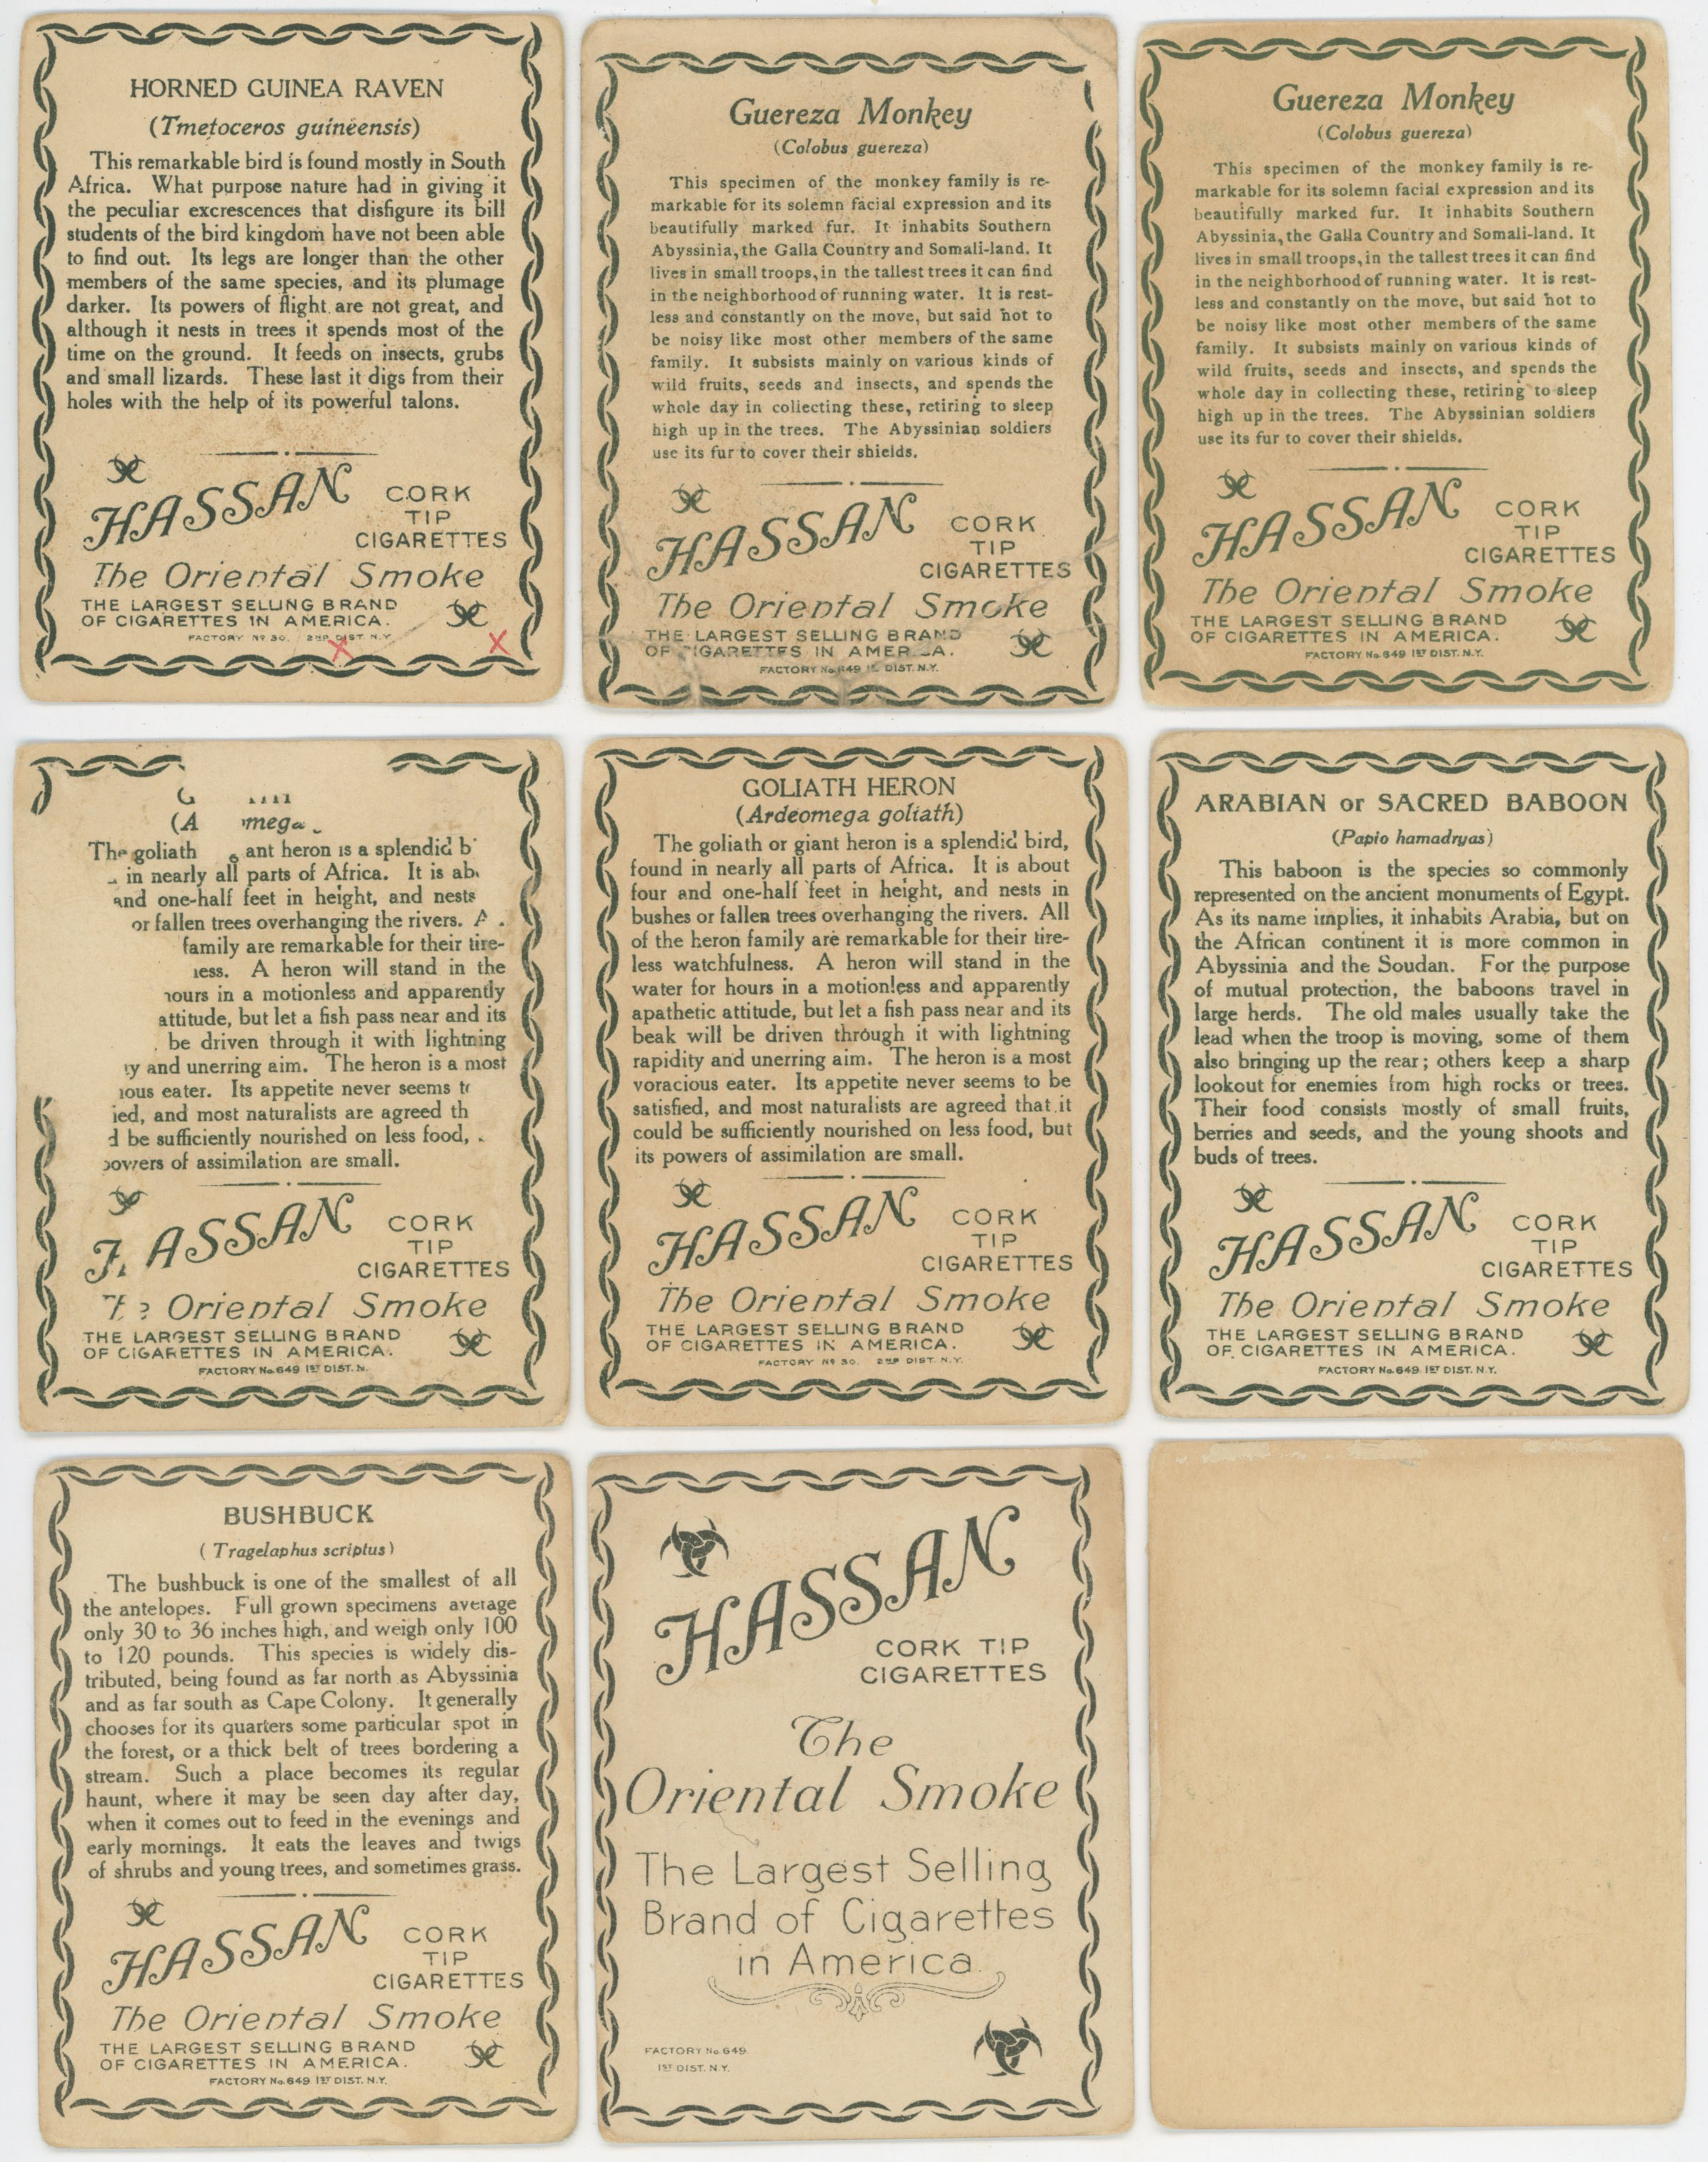 HORNED GUINEA RAVEN
(Tmetoceros guineensis)
This remarkable bird is found mostly in South
Africa. What purpose nature had in giving it
the peculiar excrescences that disfigure its bill
students of the bird kingdom have not been able
to find out. Its legs are longer than the other
members of the same species, and its plumage
darker. Its powers of flight are not great, and
although it nests in trees it spends most of the
time on the ground. It feeds on insects, grubs
and small lizards. These last it digs from their
holes with the help of its powerful talons.
HASSAN CORK
TIP
CIGARETTES
The Oriental Smoke
THE LARGEST SELLING BRAND
OF CIGARETTES IN AMERICA.
FACTORY Nº 30. 2ND DIST. N.Y.
X X
Guereza Monkey
(Colobus guereza)
This specimen of the monkey family is re-
markable for its solemn facial expression and its
beautifully marked fur. It inhabits Southern
Abyssinia, the Galla Country and Somali-land. It
lives in small troops, in the tallest trees it can find
in the neighborhood of running water. It is rest-
less and constantly on the move, but said not to
be noisy like most other members of the same
family. It subsists mainly on various kinds of
wild fruits, seeds and insects, and spends the
whole day in collecting these, retiring to sleep
high up in the trees. The Abyssinian soldiers
use its fur to cover their shields.
HASSAN CORK
TIP
CIGARETTES
The Oriental Smoke
THE LARGEST SELLING BRAND
OF CIGARETTES IN AMERICA.
FACTORY No. 649 1ST DIST. N.Y.
Guereza Monkey
(Colobus guereza)
This specimen of the monkey family is re-
markable for its solemn facial expression and its
beautifully marked fur. It inhabits Southern
Abyssinia, the Galla Country and Somali-land. It
lives in small troops, in the tallest trees it can find
in the neighborhood of running water. It is rest-
less and constantly on the move, but said not to
be noisy like most other members of the same
family. It subsists mainly on various kinds of
wild fruits, seeds and insects, and spends the
whole day in collecting these, retiring to sleep
high up in the trees. The Abyssinian soldiers
use its fur to cover their shields.
HASSAN CORK
TIP
CIGARETTES
The Oriental Smoke
THE LARGEST SELLING BRAND
OF CIGARETTES IN AMERICA.
FACTORY No. 649 1ST DIST. N.Y.
G
(A mega
The goliath ant heron is a splendid b
in nearly all parts of Africa. It is ab
and one-half feet in height, and nests
or fallen trees overhanging the rivers. A
family are remarkable for their tire-
ess. A heron will stand in the
hours in a motionless and apparently
attitude, but let a fish pass near and its
be driven through it with lightning
ty and unerring aim. The heron is a most
ious eater. Its appetite never seems to
ied, and most naturalists are agreed th
d be sufficiently nourished on less food,
powers of assimilation are small.
HASSAN CORK
TIP
CIGARETTES
The Oriental Smoke
THE LARGEST SELLING BRAND
OF CIGARETTES IN AMERICA.
FACTORY No. 649 1ST DIST. N.
GOLIATH HERON
(Ardeomega goliath)
The goliath or giant heron is a splendid bird,
found in nearly all parts of Africa. It is about
four and one-half feet in height, and nests in
bushes or fallen trees overhanging the rivers. All
of the heron family are remarkable for their tire-
less watchfulness. A heron will stand in the
water for hours in a motionless and apparently
apathetic attitude, but let a fish pass near and its
beak will be driven through it with lightning
rapidity and unerring aim. The heron is a most
voracious eater. Its appetite never seems to be
satisfied, and most naturalists are agreed that it
could be sufficiently nourished on less food, but
its powers of assimilation are small.
HASSAN CORK
TIP
CIGARETTES
The Oriental Smoke
THE LARGEST SELLING BRAND
OF CIGARETTES IN AMERICA.
FACTORY Nº 30. 2ND DIST. N.Y.
ARABIAN or SACRED BABOON
(Papio hamadryas)
This baboon is the species so commonly
represented on the ancient monuments of Egypt.
As its name implies, it inhabits Arabia, but on
the African continent it is more common in
Abyssinia and the Soudan. For the purpose
of mutual protection, the baboons travel in
large herds. The old males usually take the
lead when the troop is moving, some of them
also bringing up the rear; others keep a sharp
lookout for enemies from high rocks or trees.
Their food consists mostly of small fruits,
berries and seeds, and the young shoots and
buds of trees.
HASSAN CORK
TIP
CIGARETTES
The Oriental Smoke
THE LARGEST SELLING BRAND
OF CIGARETTES IN AMERICA.
FACTORY No. 649 1ST DIST. N.Y.
BUSHBUCK
(Tragelaphus scriptus)
The bushbuck is one of the smallest of all
the antelopes. Full grown specimens average
only 30 to 36 inches high, and weigh only 100
to 120 pounds. This species is widely dis-
tributed, being found as far north as Abyssinia
and as far south as Cape Colony. It generally
chooses for its quarters some particular spot in
the forest, or a thick belt of trees bordering a
stream. Such a place becomes its regular
haunt, where it may be seen day after day,
when it comes out to feed in the evenings and
early mornings. It eats the leaves and twigs
of shrubs and young trees, and sometimes grass.
HASSAN CORK
TIP
CIGARETTES
The Oriental Smoke
THE LARGEST SELLING BRAND
OF CIGARETTES IN AMERICA.
FACTORY No. 649 1ST DIST. N.Y.
HASSAN
CORK TIP
CIGARETTES
The
Oriental Smoke
The Largest Selling
Brand of Cigarettes
in America
FACTORY No. 649
1ST DIST. N.Y.